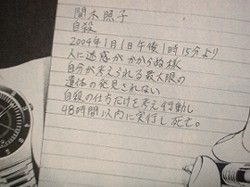 間木照子
自殺
2004年1月1日午後1時15分より
人に迷惑がかからぬ様
自分が考えられる最大限の
遺体の発見されない
自殺の仕方だけを考え行動し
48時間以内に実行し死亡。